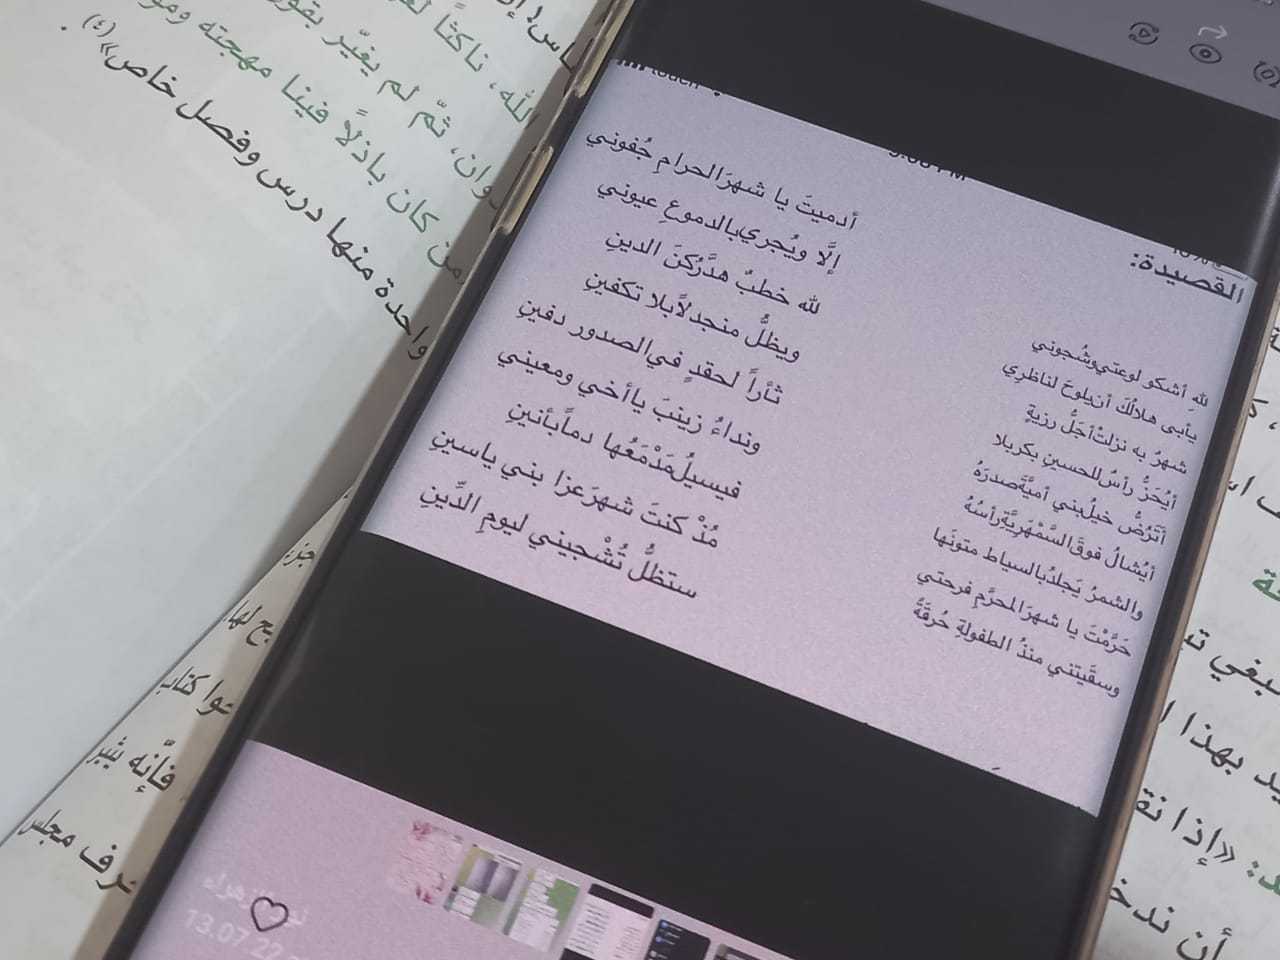 لله، ناكثًا
وان، ثمّ لم يغيّر بقول
من كان باذلًا فينا مهجته
واحدة منها درس وفصل خاص» (٤).
القصيدة:
للهِ أشكو لوعتي وشُجوني
أدميتَ يا شهرَ الحرامِ جُفوني
يأبى هلالُكَ أن يلوحَ لناظري
إلَّا ويُجري بالدموعِ عيوني
شهرُ به نزلتْ أجَلُّ رزيةٍ
لله خطبٌ هدَّ رُكنَ الدينِ
أيُحَزُّ رأسُ للحسينِ بكربلا
ويظلُّ منجدلاً بلا تكفينِ
أتَرُضُّ خيلُ بني أميَّةَ صدرَهُ
ثأراً لحقدٍ في الصدور دفينِ
أيُشالُ فوقَ السَّمْهَرِيَّةِ رأسُهُ
ونداءُ زينبَ يا أخي ومعيني
والشمرُ يَجلدُ بالسياط متونَها
فيسيلُ مَدْمَعُها دماً بأنينِ
حَرَّمْتَ يا شهرَ المحرَّمِ فرحتي
مُذْ كنتَ شهرَ عزا بني ياسينِ
وسقَيتني منذُ الطفولةِ حُرقَةً
ستظلُّ تُشْجيني ليومِ الدِّينِ
13.07.22
يع لها
كتاب
فإنّه يثير
مجلس
ينبغي
يد بهذا
«إذا
أن ندخ